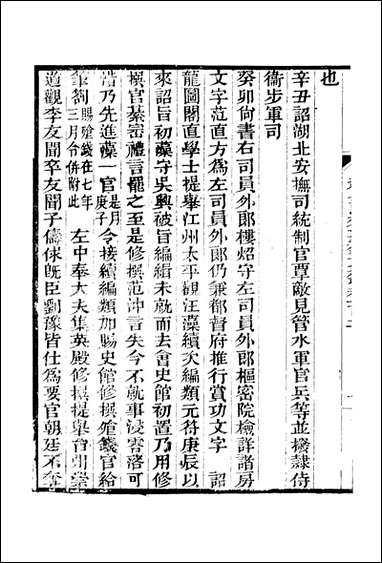 也
辛丑詔湖北安撫司統制官覃敵見管水軍官兵等並撥隸侍
衞步軍司
癸卯尙書右司員外郎樓炤守左司員外郎樞密院檢詳諸房
文字范直方為左司員外郎仍兼都督府推行賞功文字　詔
龍圖閣直學士提舉江州太平觀汪藻續次編類元符庚辰以
來詔旨初藻守吳興被旨編緝未就而去會史館初置乃用修
撰官綦崈禮言罷之至是修撰范沖言失今不就事浸零落可
惜乃先進藻一官是月庚子令接續編類加賜史館修撰飱錢官給
筆劄賜飱錢在七年三月今併附此　左中奉大夫集英殿修撰提舉台州崇
道觀李友聞卒友聞子儔俅旣臣劉豫皆仕為要官朝廷不奪